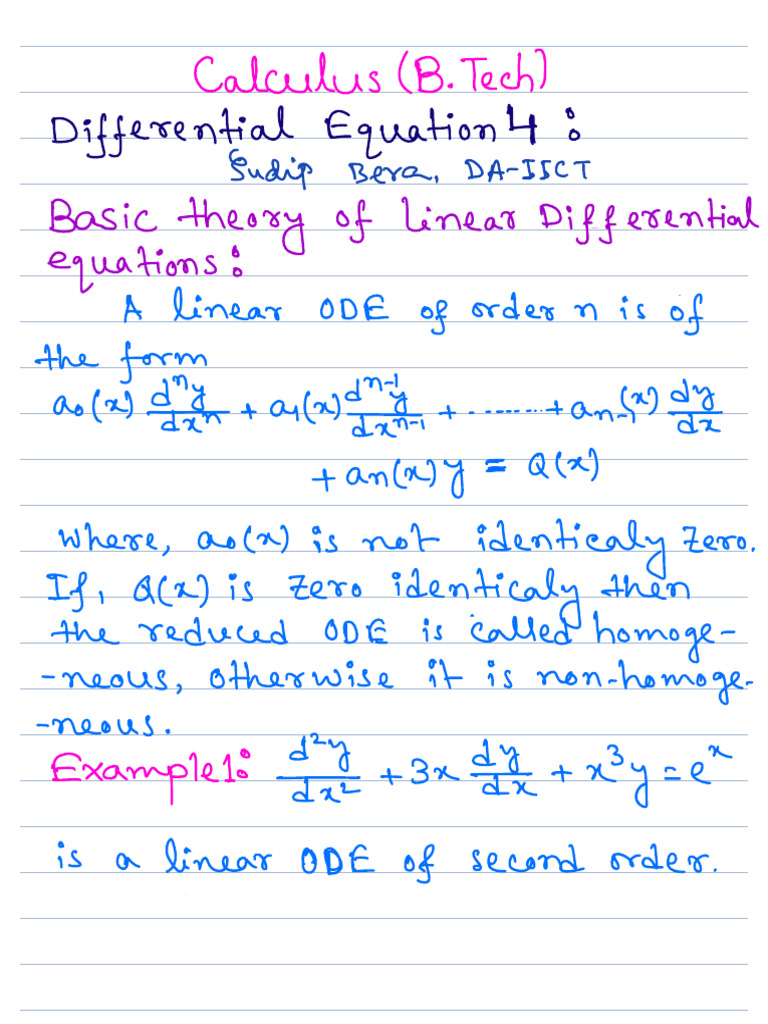 Calculus (B.Tech)
Differential Equation 4 :
Sudip Bera, DA-IICT
Basic theory of linear Differential
equations :
A linear ODE of order n is of
the form
a₀(x) dⁿy/dxⁿ + a₁(x) dⁿ⁻¹y/dxⁿ⁻¹ + ........ + aₙ₋₁(x) dy/dx
+ an(x) y = Q(x)
where, a₀(x) is not identicaly zero.
If, Q(x) is zero identicaly then
the reduced ODE is called homoge-
-neous, otherwise it is non-homoge-
-neous.
Example1: d²y/dx² + 3x dy/dx + x³y = eˣ
is a linear ODE of second order.